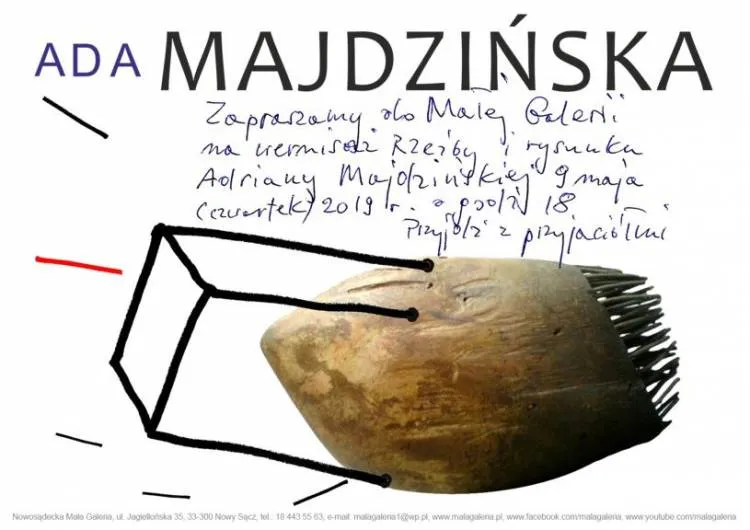 ADA MAJDZIŃSKA
Zapraszamy do Małej Galerii
na wernisaż Rzeźby i rysunku
Adriany Majdzińskiej 9 maja
(czwartek) 2019 r. o godz. 18
Przyjdź z przyjaciółmi
Nowosądecka Mała Galeria, ul. Jagiellońska 35, 33-300 Nowy Sącz, tel.: 18 443 55 63, e-mail: malagaleria1@wp.pl, www.malagaleria.pl, www.facebook.com/malagaleria, www.youtube.com/malagaleria